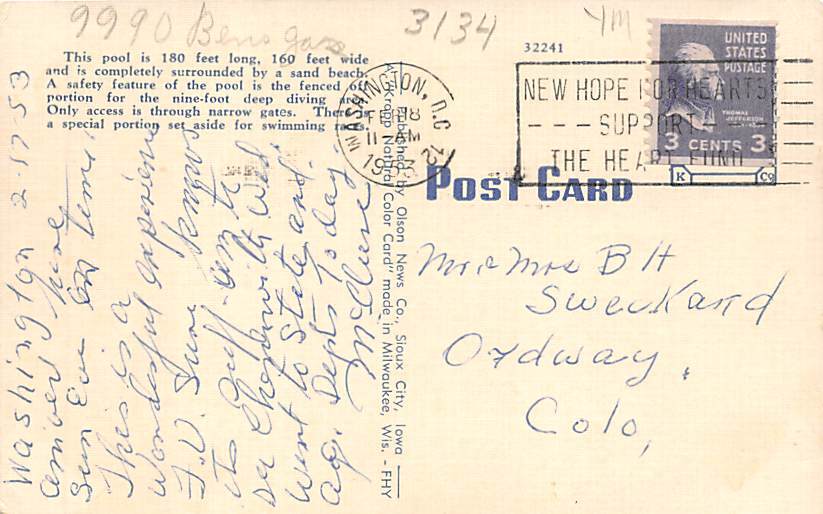 9990 Bens gas
3134
YM
32241
This pool is 180 feet long, 160 feet wide
and is completely surrounded by a sand beach.
A safety feature of the pool is the fenced off
portion for the nine-foot deep diving area.
Only access is through narrow gates. There is
a special portion set aside for swimming races.
WASHINGTON, D.C.
FEB 18
11 AM
1953
NEW HOPE FOR HEARTS
SUPPORT
THE HEART FUND
UNITED
STATES
POSTAGE
THOMAS
JEFFERSON
3 CENTS 3
K Co
POST CARD
Published by Olson News Co., Sioux City, Iowa
"C.T. Kropp Natural Color Card" made in Milwaukee, Wis. - FHY
Washington 2-17-53
arrived here
Sun Eve on time.
This is a
wonderful experience
F.U. Sure knows
its
went to State and
ag. Depts today.
McClures
Mr & Mrs B H
Sweckard
Ordway,
Colo,